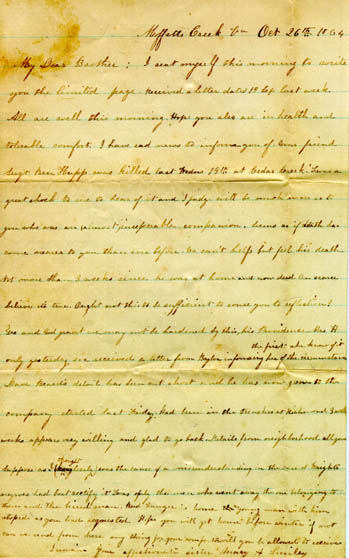 Moffetts Creek Va Oct 26th 1864
My Dear Brother: I seat myself this morning to write
you the limited page received a letter dated 19 Sep last week
All are well this morning Hope you also are in health and
tolerable comfort. I have sad news to inform you of. Our friend
Sergt Ben Hupp was killed last Wedns 19th at Cedar Creek. It was a
great shock to me to hear of it and I judge will be much more so to
you who was an almost inseperable companion. Seems as if death has
come nearer to you than ever before. We can't help but feel his death
Not more than 3 weeks since he was at home and now dead Can scarce
believe its true. Ought not this to be sufficient to cause you to reflection?
Yes and God grant we may not be hardened by this, his Providence. Mrs H
the first she knew of it
only yesterday she received a letter from informing her of the circumstances
Dave detail has been cut short and he has now gone to the
company started last Friday. Had been in the trenches at Richmond 3 or 4
weeks appears very willing and glad to go back. Details from neighborhood all gone
Suppose as I was the cause of a misunderstanding in the case of Wrights
negroes had best rectify it. Twas only the man who went away the one belonging to
them and the hired man. And is home the young man with him
stoped as you had requested. Hope you will get home before winter if not
can we send from here any thing for your comfort. Will you be allowed to receive
I remain Your affectionate sister Mary A Smiley